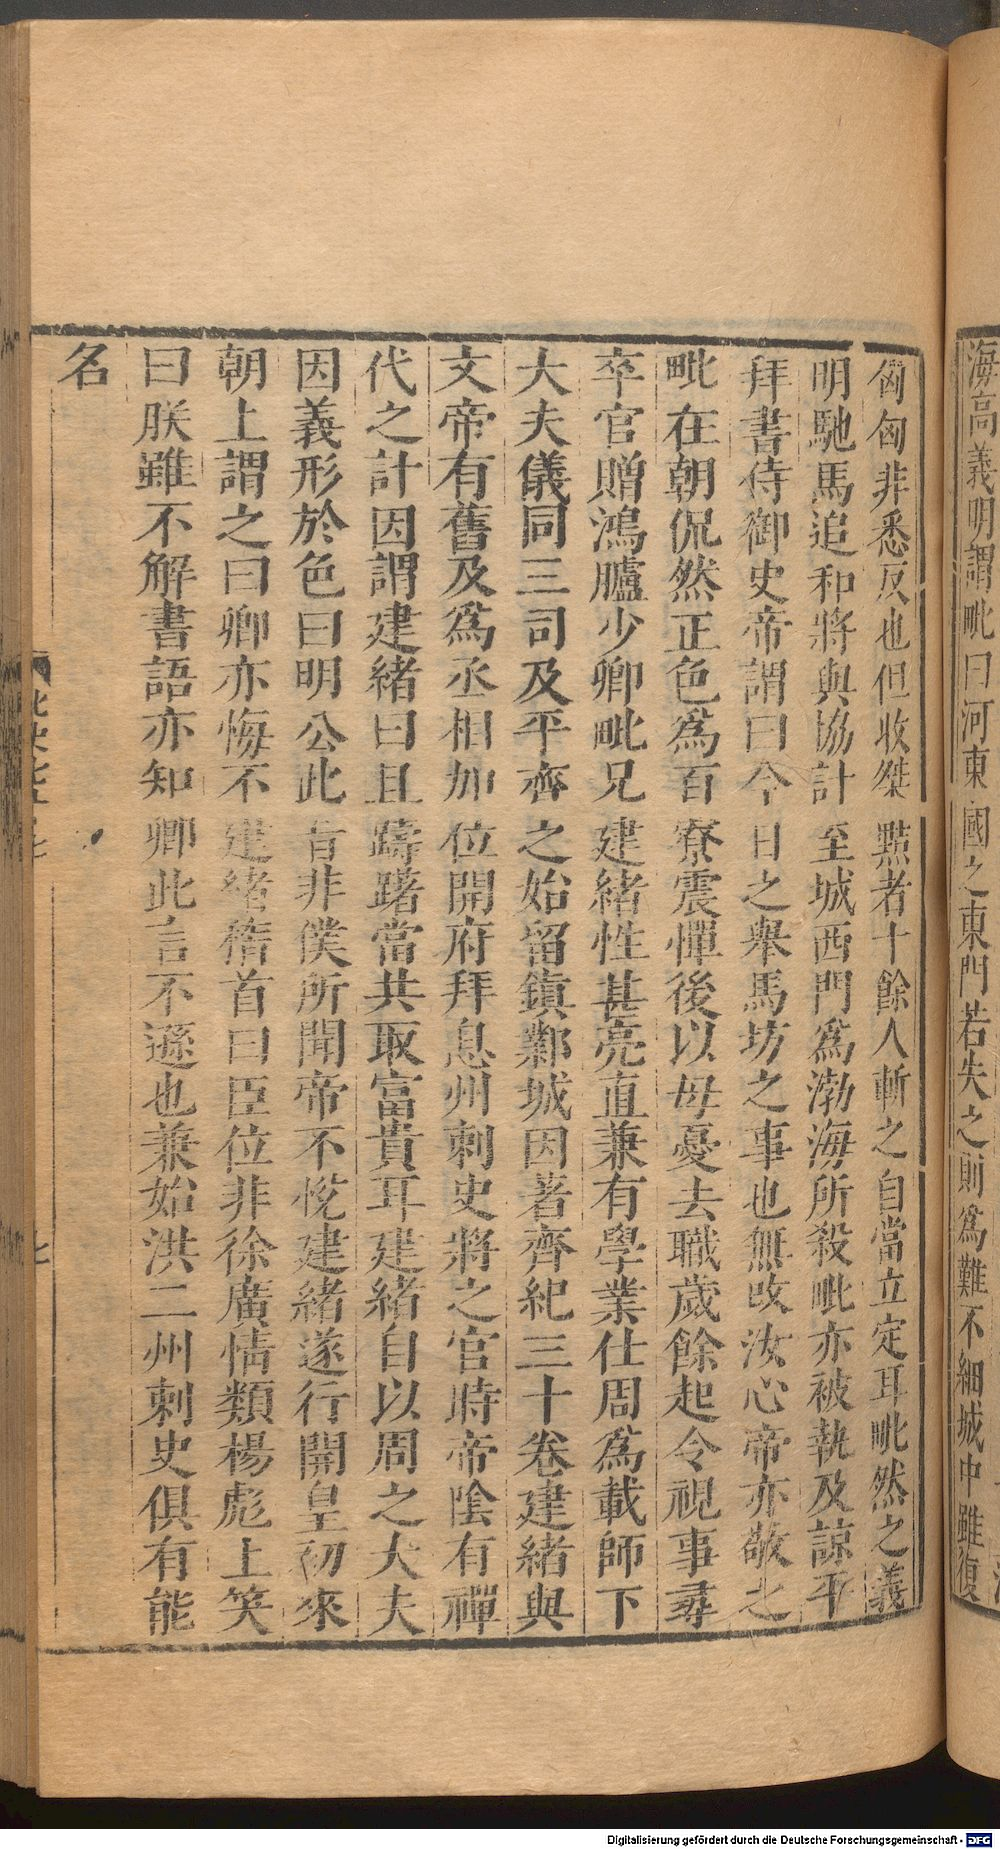 海高義明謂毗曰河東國之東門若失之則爲難不細城中雖復
匈匈非悉反也但收桀黠者十餘人斬之自當立定耳毗然之義
明馳馬追和將與協計至城西門爲渤海所殺毗亦被執及諒平
拜書侍御史帝謂曰今日之舉馬坊之事也無改汝心帝亦敬之
毗在朝侃然正色爲百寮震憚後以母憂去職歲餘起令視事尋
卒官贈鴻臚少卿毗兄建緒性甚亮直兼有學業仕周爲載師下
大夫儀同三司及平齊之始留鎮鄴城因著齊紀三十卷建緒與
文帝有舊及爲丞相加位開府拜息州刺史將之官時帝陰有禪
代之計因謂建緒曰且躊躇當共取富貴耳建緒自以周之大夫
因義形於色曰明公此旨非僕所聞帝不悅建緒遂行開皇初來
朝上謂之曰卿亦悔不建緒稽首曰臣位非徐廣情類楊彪上笑
曰朕雖不解書語亦知卿此言不遜也兼始洪二州刺史俱有能
名
Digitalisierung gefördert durch die Deutsche Forschungsgemeinschaft - DFG